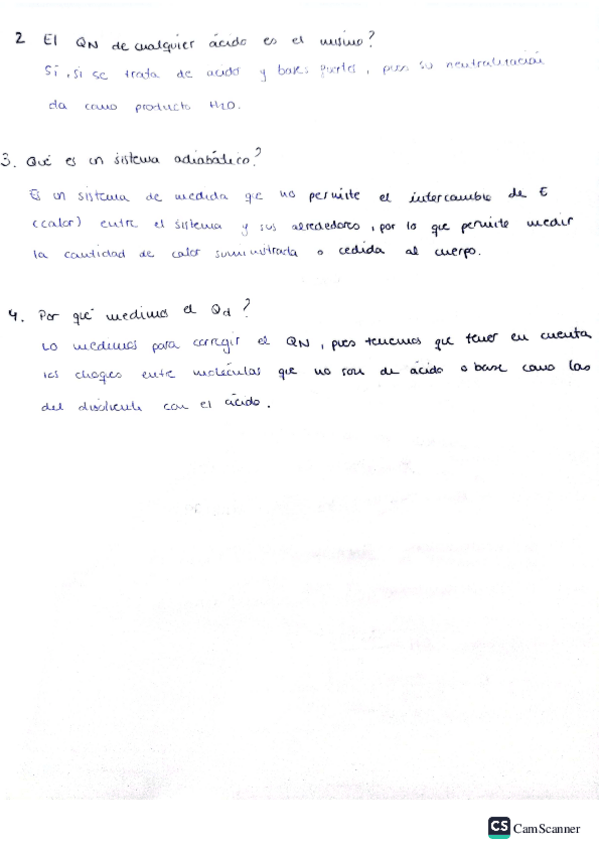 2 El QN de cualquier ácido es el mismo?
Sí, si se trata de acidos y bases fuertes, pues su neutralización
da como producto H2O.
3. Qué es un sistema adiabático?
Es un sistema de medida que no permite el intercambio de E
(calor) entre el sistema y sus alrededores, por lo que permite medir
la cantidad de calor suministrada o cedida al cuerpo.
4. Por qué medimos el Qd?
Lo medimos para corregir el QN, pues tenemos que tener en cuenta
los choques entre moléculas que no son de ácido o base como las
del disolvente con el ácido.
CS CamScanner